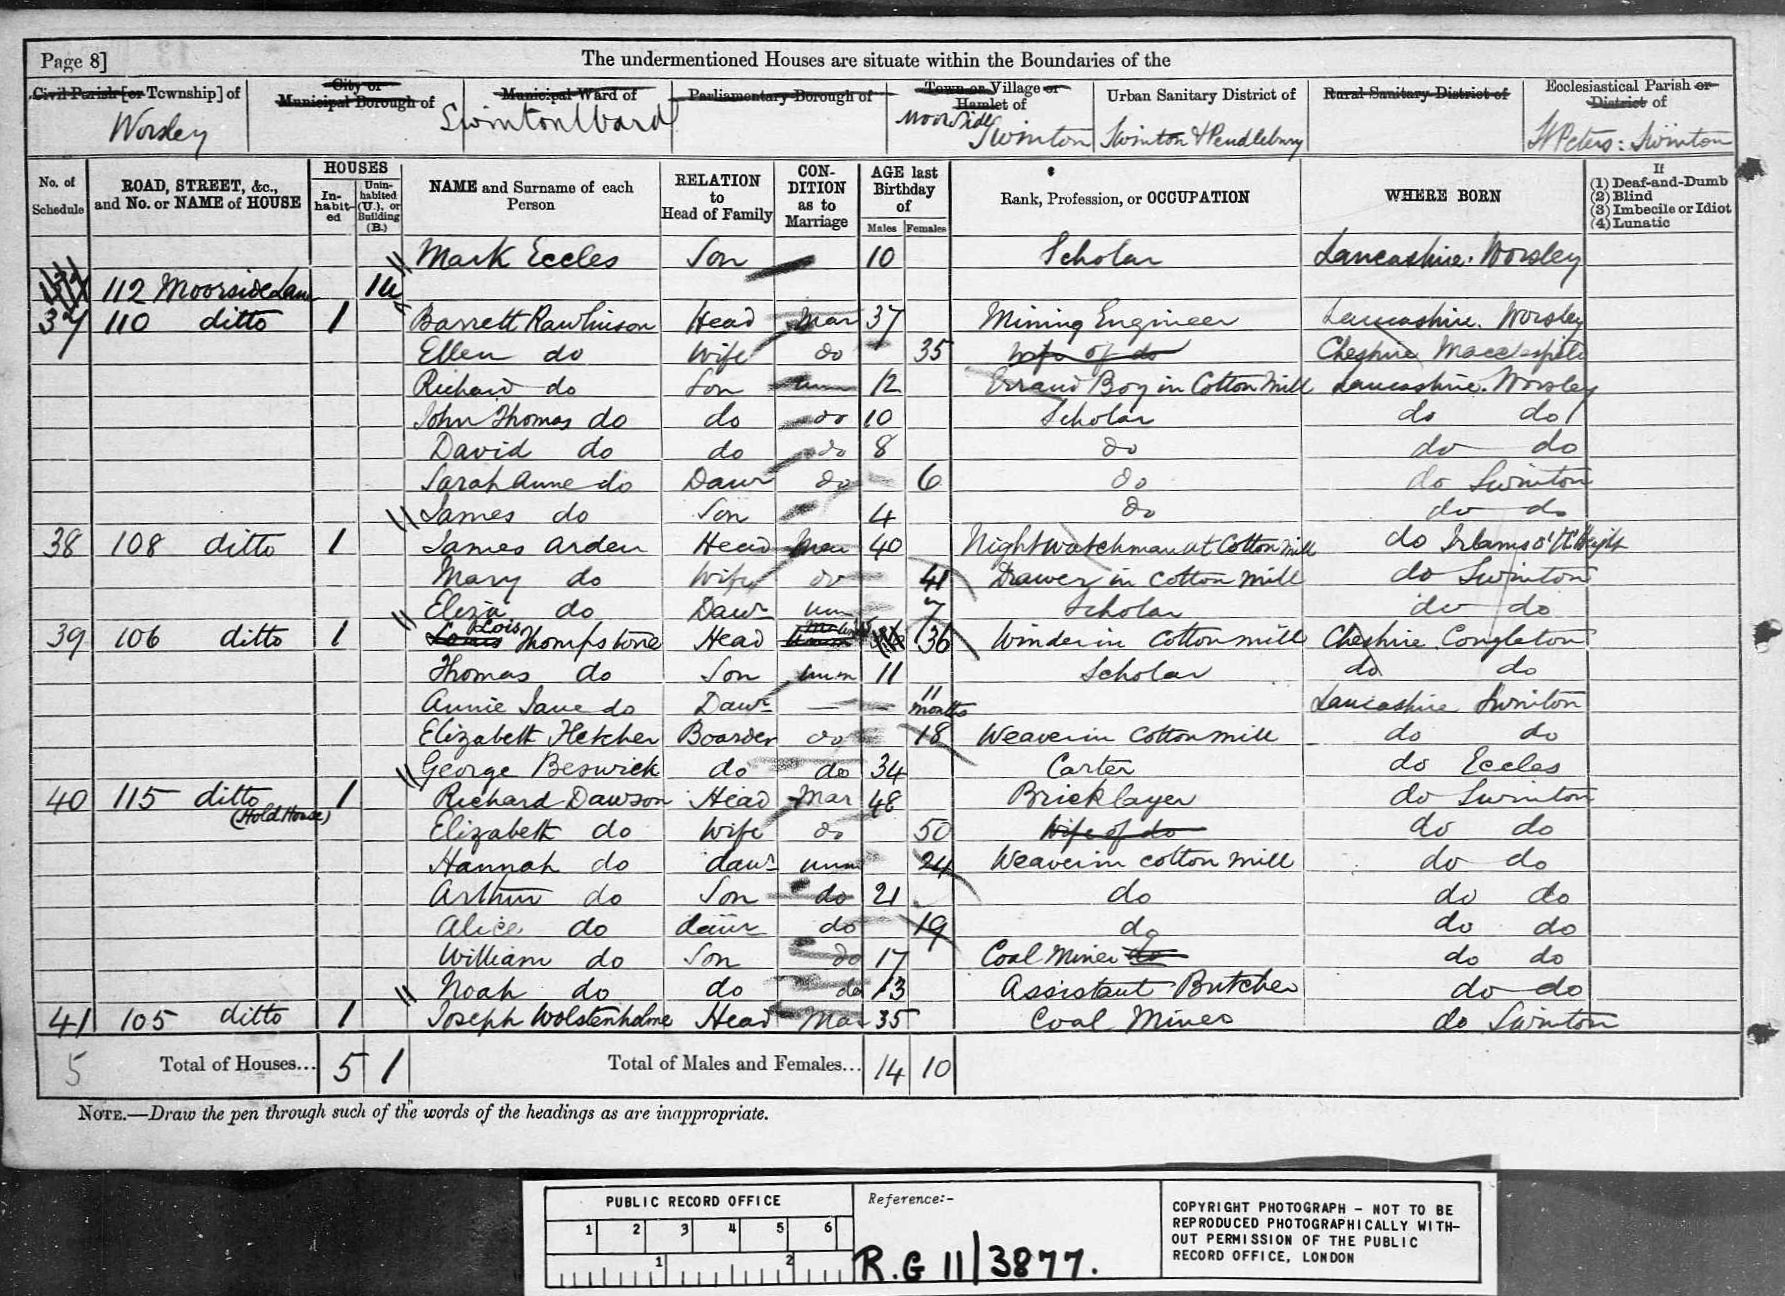 Page 8] The undermentioned Houses are situate within the Boundaries of the
Civil Parish [or Township] of City or Municipal Borough of Municipal Ward of Parliamentary Borough of Town or Village or Hamlet of Urban Sanitary District of Rural Sanitary District of Ecclesiastical Parish or District of
Worsley Swinton Ward Moorside Swinton Swinton & Pendlebury St Peters: Swinton
No. of Schedule ROAD, STREET, &c., and No. or NAME of HOUSE HOUSES In-habit-ed Unin-habited (U.), or Building (B.) NAME and Surname of each Person RELATION to Head of Family CON-DITION as to Marriage AGE last Birthday of Males Females Rank, Profession, or OCCUPATION WHERE BORN If (1) Deaf-and-Dumb (2) Blind (3) Imbecile or Idiot (4) Lunatic
Mark Eccles Son 10 Scholar Lancashire. Worsley
112 Moorside Lane 1u
37 110 ditto 1 Barrett Rawlinson Head Mar 37 Mining Engineer Lancashire. Worsley
Ellen do Wife do 35 Wife of do Cheshire Macclesfield
Richard do Son unm 12 Errand Boy in Cotton Mill Lancashire. Worsley
John Thomas do do do 10 Scholar do do
David do do do 8 do do do
Sarah Anne do Dawr do 6 do do Swinton
James do Son 4 do do do
38 108 ditto 1 James Arden Head Mar 40 Night Watchman at Cotton Mill do Irlams o' th' Height
Mary do Wife do 41 Drawer in Cotton Mill do Swinton
Eliza do Dawr unm 7 Scholar do do
39 106 ditto 1 Lois Thompstone Head 36 Winder in Cotton mill Cheshire Congleton
Thomas do Son unm 11 Scholar do do
Annie Jane do Dawr — 11 months Lancashire Swinton
Elizabeth Fletcher Boarder do 18 Weaver in Cotton mill do do
George Beswick do do 34 Carter do Eccles
40 115 ditto (Hold House) 1 Richard Dawson Head Mar 48 Bricklayer do Swinton
Elizabeth do Wife do 50 Wife of do do do
Hannah do dawr unm 24 Weaver in cotton mill do do
Arthur do Son do 21 do do do
Alice do daur do 19 do do do
William do Son do 17 Coal Miner do do do
Noah do do do 13 Assistant Butcher do do
41 105 ditto 1 Joseph Wolstenholme Head Mar 35 Coal Miner do Swinton
5 Total of Houses... 5 1 Total of Males and Females... 14 10
NOTE.—Draw the pen through such of the words of the headings as are inappropriate.
PUBLIC RECORD OFFICE
1 2 3 4 5 6
1 2
Reference:-
R.G 11/3877.
COPYRIGHT PHOTOGRAPH - NOT TO BE
REPRODUCED PHOTOGRAPHICALLY WITH-
OUT PERMISSION OF THE PUBLIC
RECORD OFFICE, LONDON